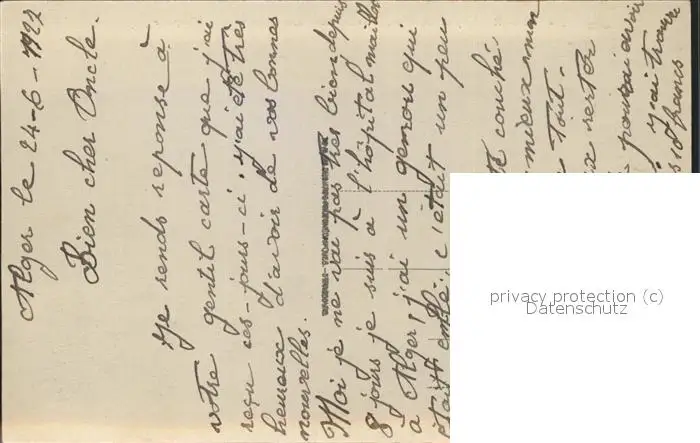 Alger le 24-6-1922
Bien cher Oncle.
Je rends reponse à
votre gentil carte que j'ai
reçu ces-jours-ci. j'ai été tres
heureux d'avoir de vos bonnes
nouvelles.
Moi je ne vai pas tres bien depuis
8 jours je suis à l'hôpital maillot
à Alger, j'ai un genou qui
était emflé, c'était un peu
couché.
mieux mon
tout.
rester
pouvoir avoir
j'ai trouvé
10 francs
privacy protection (c)
Datenschutz